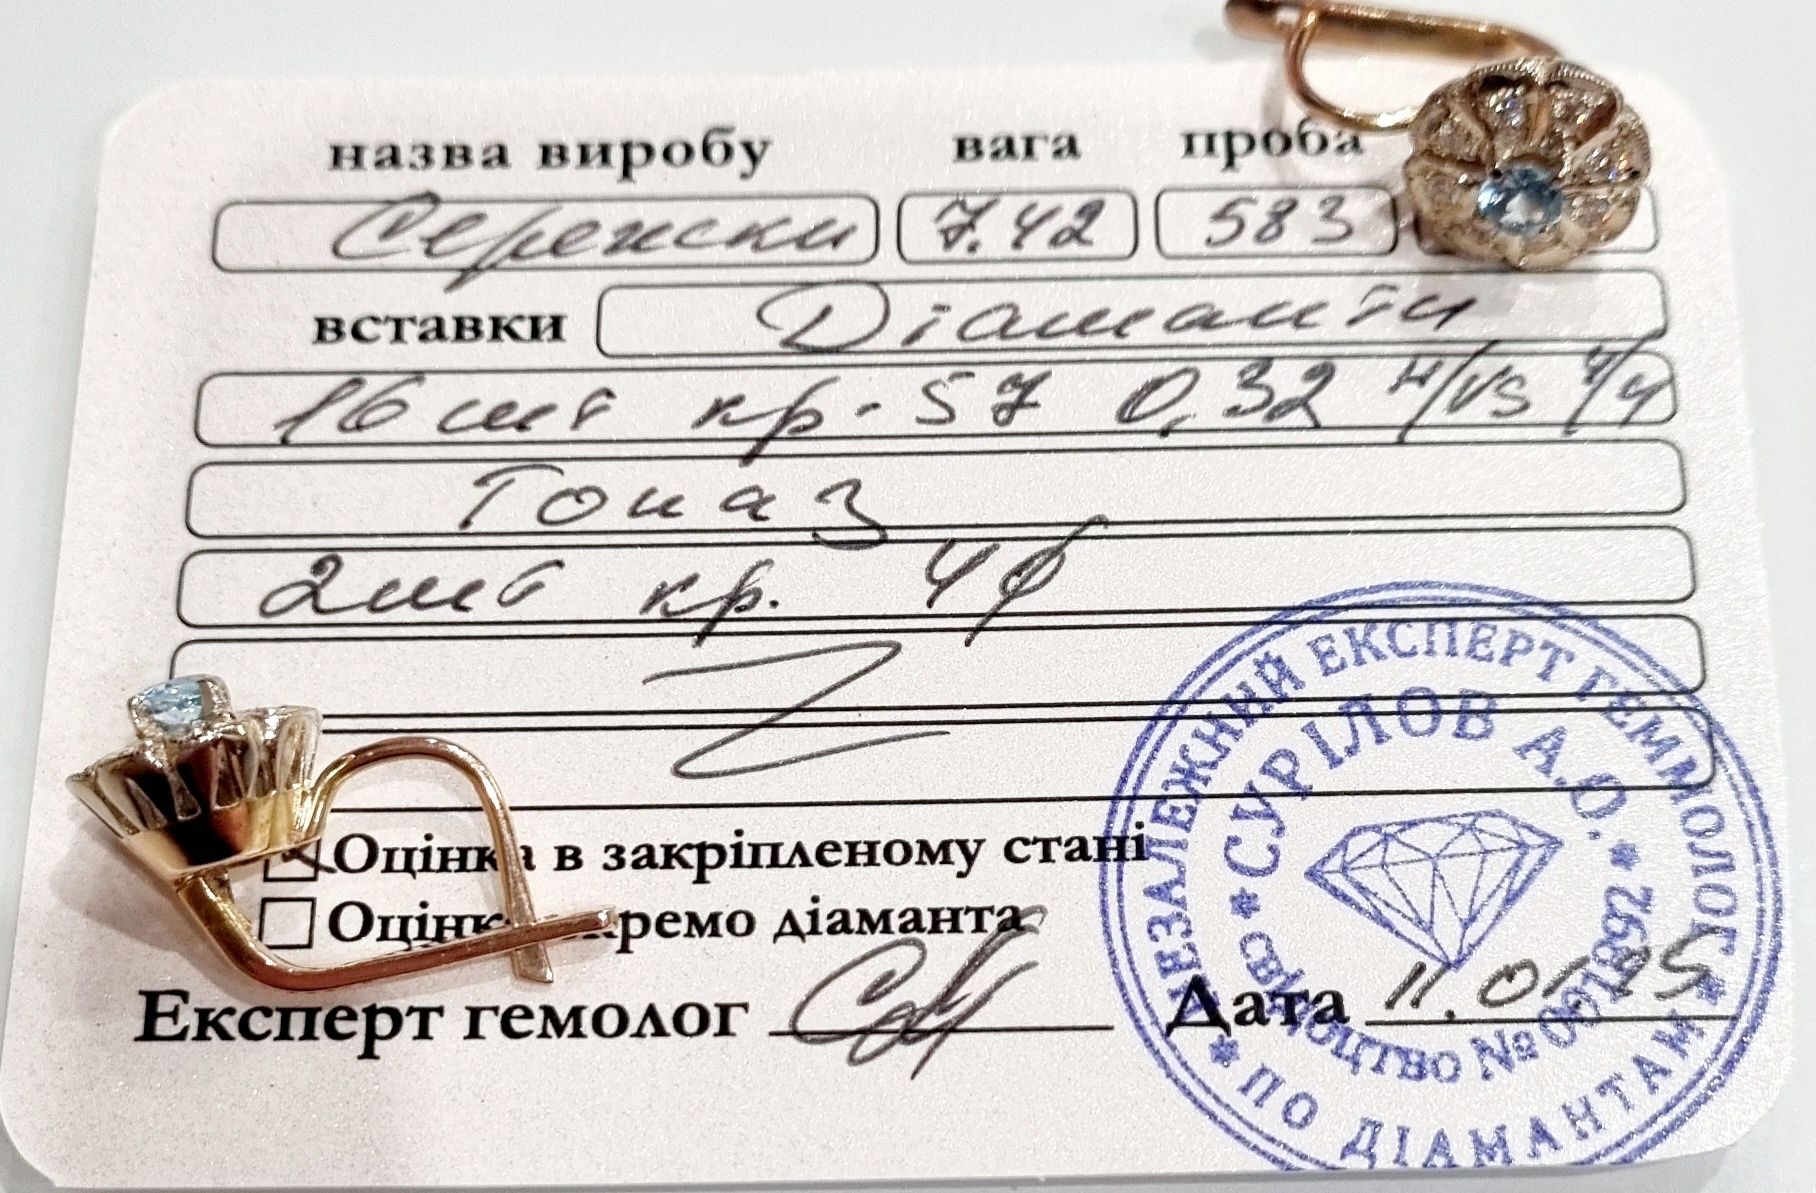 назва виробу вага проба
Сережки 7.42 583
вставки Діаманти
16 шт кр-57 0,32 4/VS 4/4
Топаз
2 шт кр. 4ф
Оцінка в закріпленому стані
Оцінк кремо діаманта
Експерт гемолог Дата 11.01.25
* НЕЗАЛЕЖНИЙ ЕКСПЕРТ ГЕММОЛОГ * ПО ДІАМАНТАМ *
* СУРІЛОВ А.О. * СВІДОЦТВО №